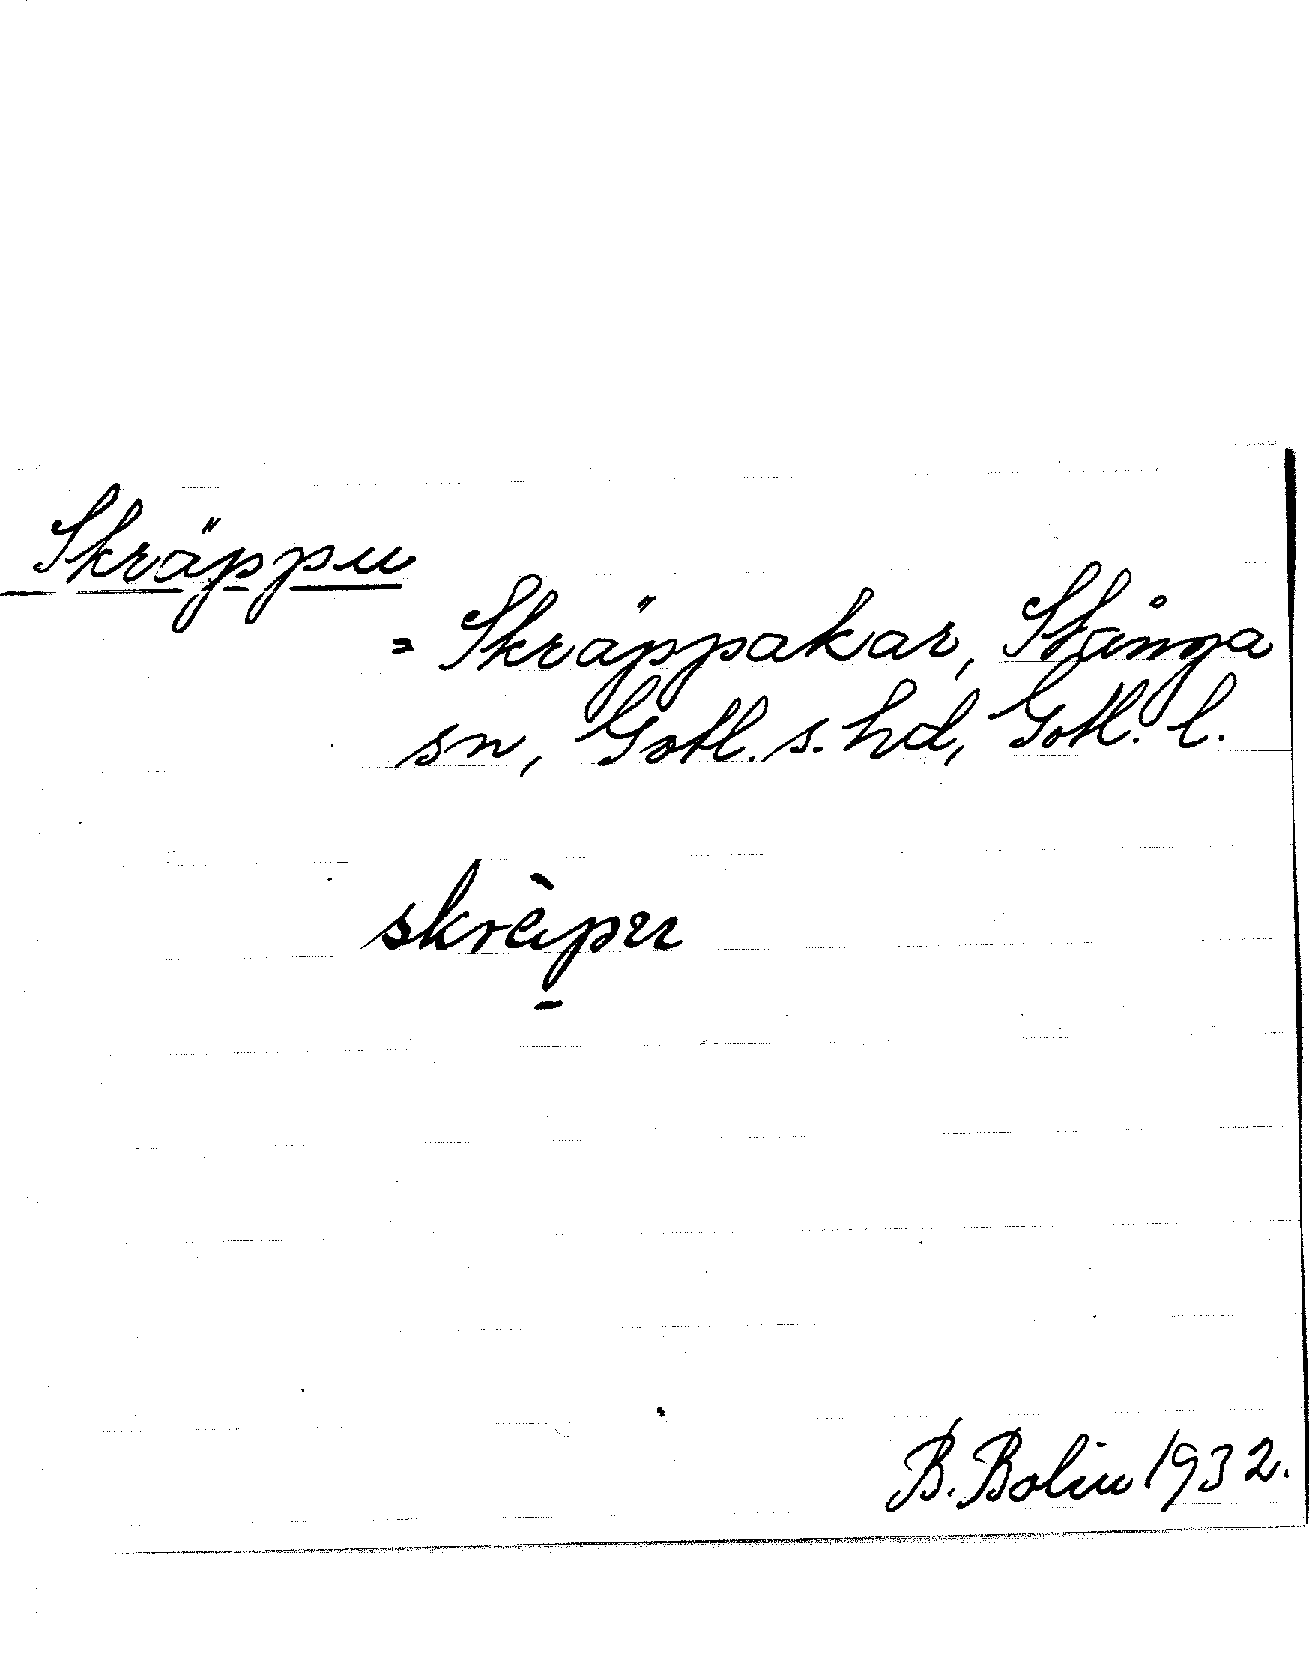 Skräppu
= Skräppakar, Stånga
sn, Gotl. s. hd, Gotl. l.
skrèpu
B. Bolin 1932.